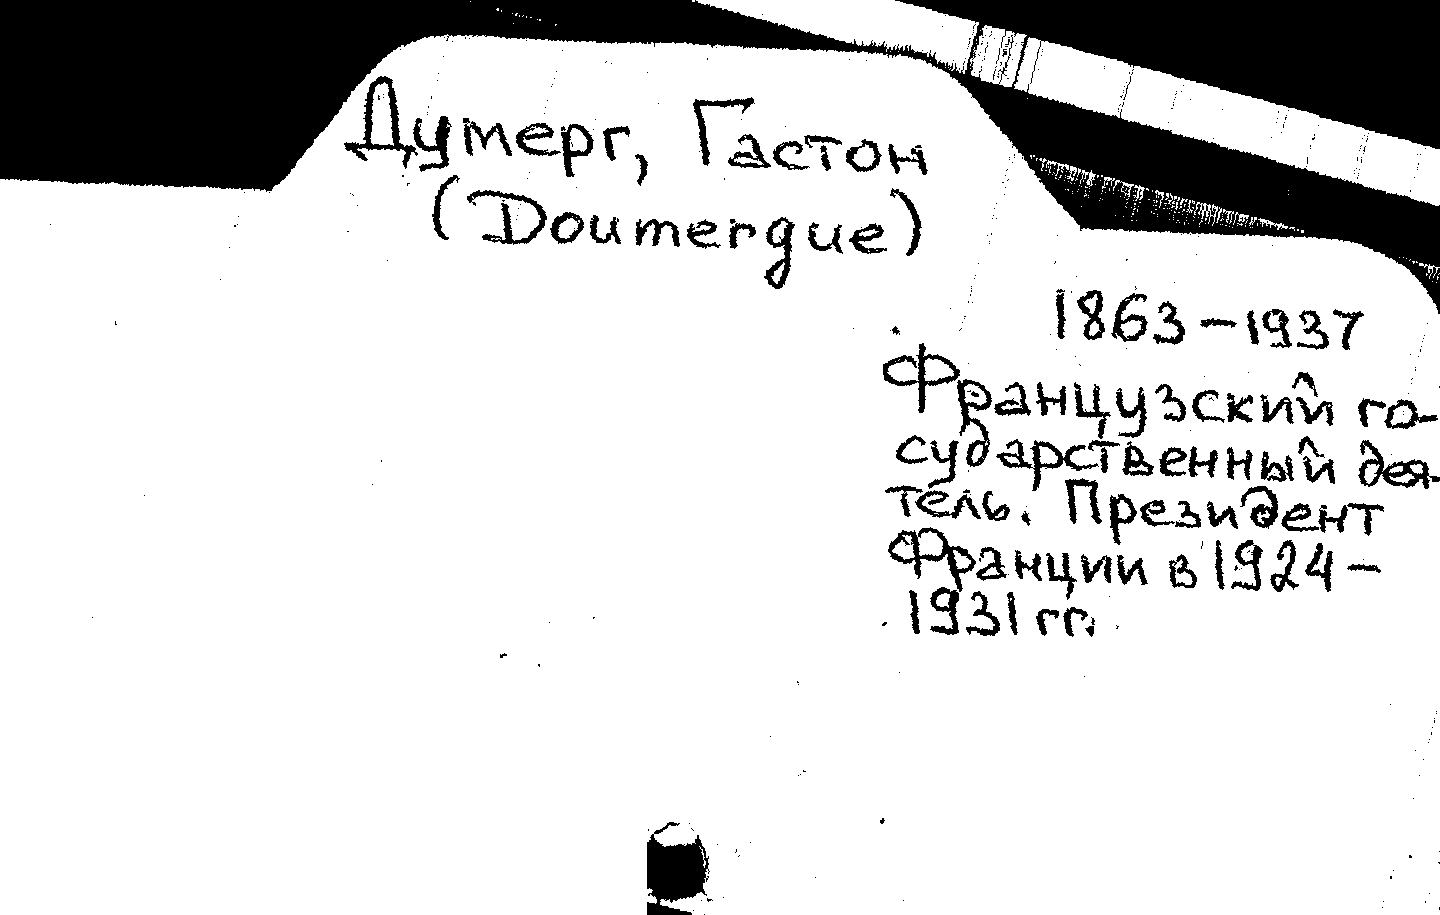 Думерг, Гастон
(Doumergue)
1863-1937
Французский го-
сударственный дея-
тель. Президент
Франции в 1924-
1931 гг.